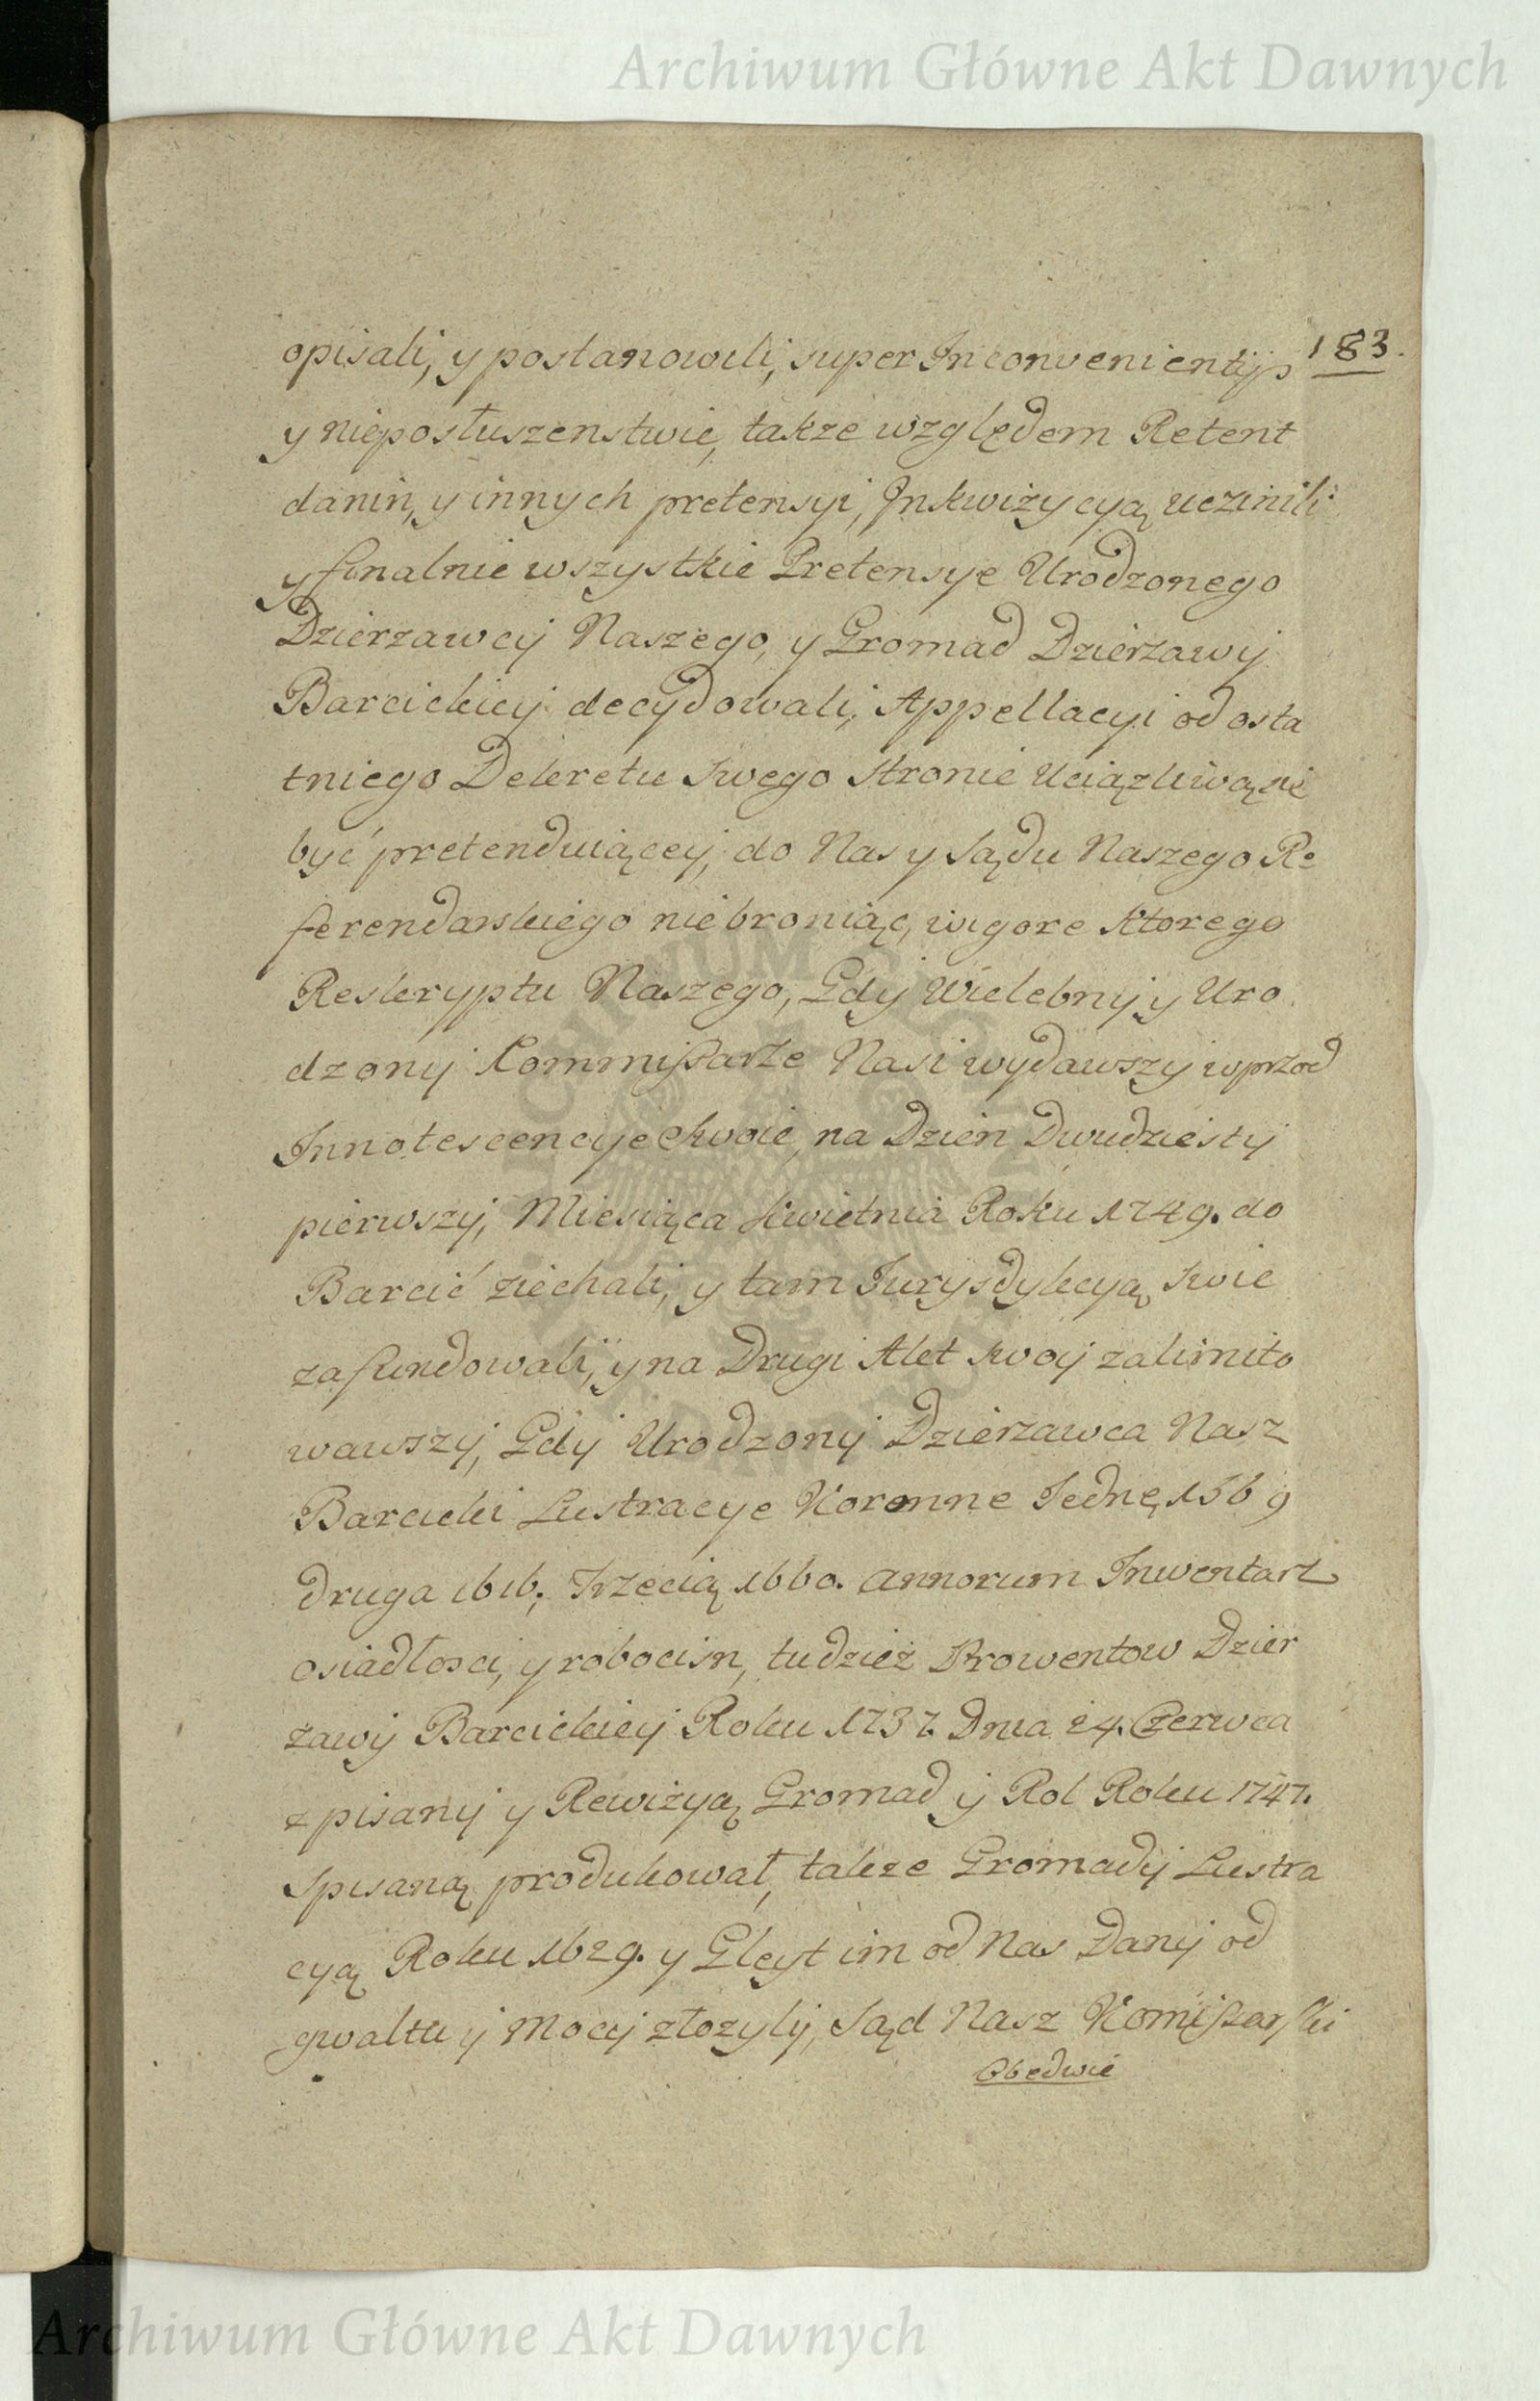 Archiwum Główne Akt Dawnych
183.
opisali, y postanowili, super Inconvenientijs
y nieposłuszenstwie, takze względem Retent
danin, y innych pretensyi, Inkwizycyą uczinili
y finalnie wszystkie Pretensye Urodzonego
Dzierzawcy Naszego, y Gromad Dzierzawy
Barcickiey decydowali, Appellacyi od osta
tniego Dekretu swego stronie Uciązliwą się
być pretenduiącey, do Nas y Sądu Naszego Re
ferendarskiego niebroniąc, vigore ktorego
Reskryptu Naszego, Gdy Wielebny y Uro
dzony Kommissarze Nasi wydawszy wprzod
Innotescencye swoie, na Dzien Dwudziesty
pierwszy, Miesiąca Kwietnia Roku 1749. do
Barcić ziechali, y tam Jurysdykcyą swie
zafundowali, y na Drugi Akt swoy zalimito
wawszy, Gdy Urodzony Dzierzawca Nasz
Barcicki Lustracye Koronne Jednę 1569
druga 1616. Trzecią 1660. annorum Inwentarz
osiadłosci, y robocisn, tudziez Prowentow Dzier
zawy Barcickiey Roku 1737. Dnia 24. Czerwca
zpisany y Rewizyą Gromad y Rol Roku 1747.
Spisaną produkował, takze Gromady Lustra
cyą Roku 1629. y Gleyt im od Nas Dany od
gwaltu y Mocy złozyly, Sąd Nasz Komissarski
Obedwie
Archiwum Główne Akt Dawnych